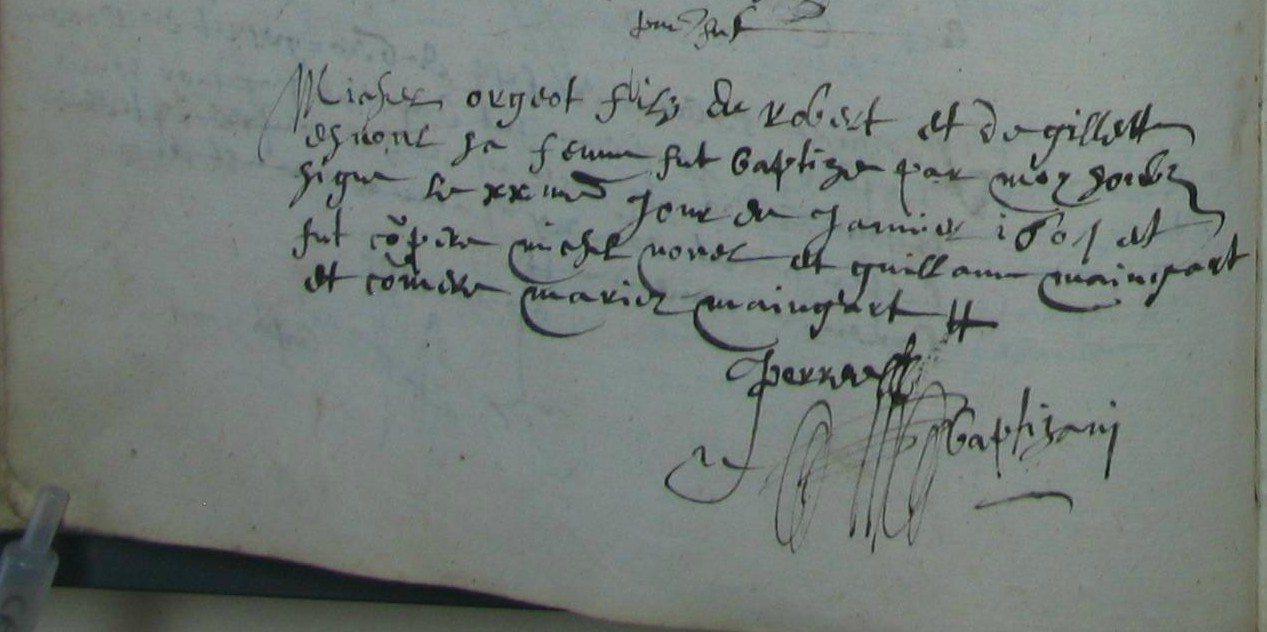 Michel orgeot filz de Robert et de gillette
esnoul sa femme fut baptize par moy soubz
signe le xx iiiie jour de janvier 1601 et
fut cõpere michel nouel et guillaume maingart
et cõmere marie maingart
perree
baptizavi